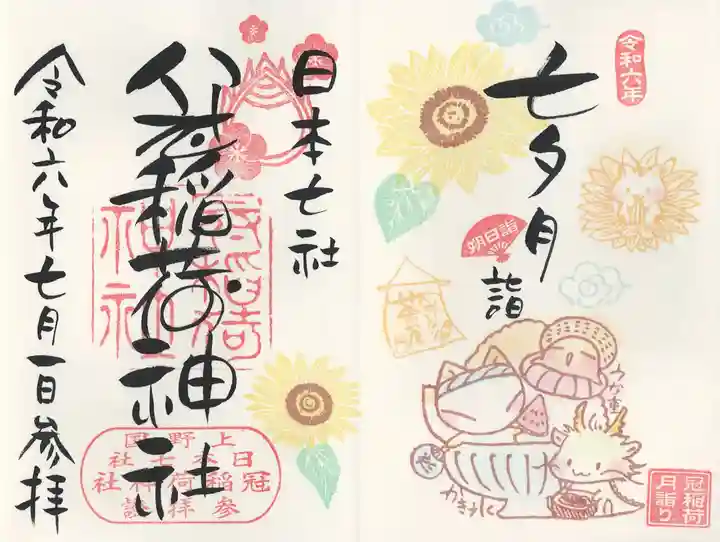 令和六年
七夕月詣
朔日詣
うな重
冠稲荷
月詣り
日本七社
冠稲荷神社
令和六年七月一日参拝
上野国
日本七社
冠稲荷神社
参拝証